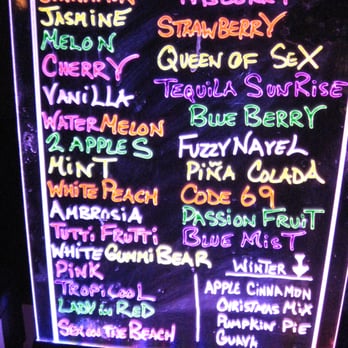 JASMINE
MELON
CHERRY
VANILLA
WATERMELON
2 APPLES
MINT
WHITE PEACH
AMBROSIA
TUTTI FRUTTI
WHITE GUMMI BEAR
PINK
TROPICOOL
LADY IN RED
SEX ON THE BEACH
STRAWBERRY
QUEEN OF SEX
TEQUILA SUNRISE
BLUE BERRY
FUZZY NAVEL
PIÑA COLADA
CODE 69
PASSION FRUIT
BLUE MIST
WINTER
APPLE CINNAMON
CHRISTMAS MIX
PUMPKIN PIE
GUAVA